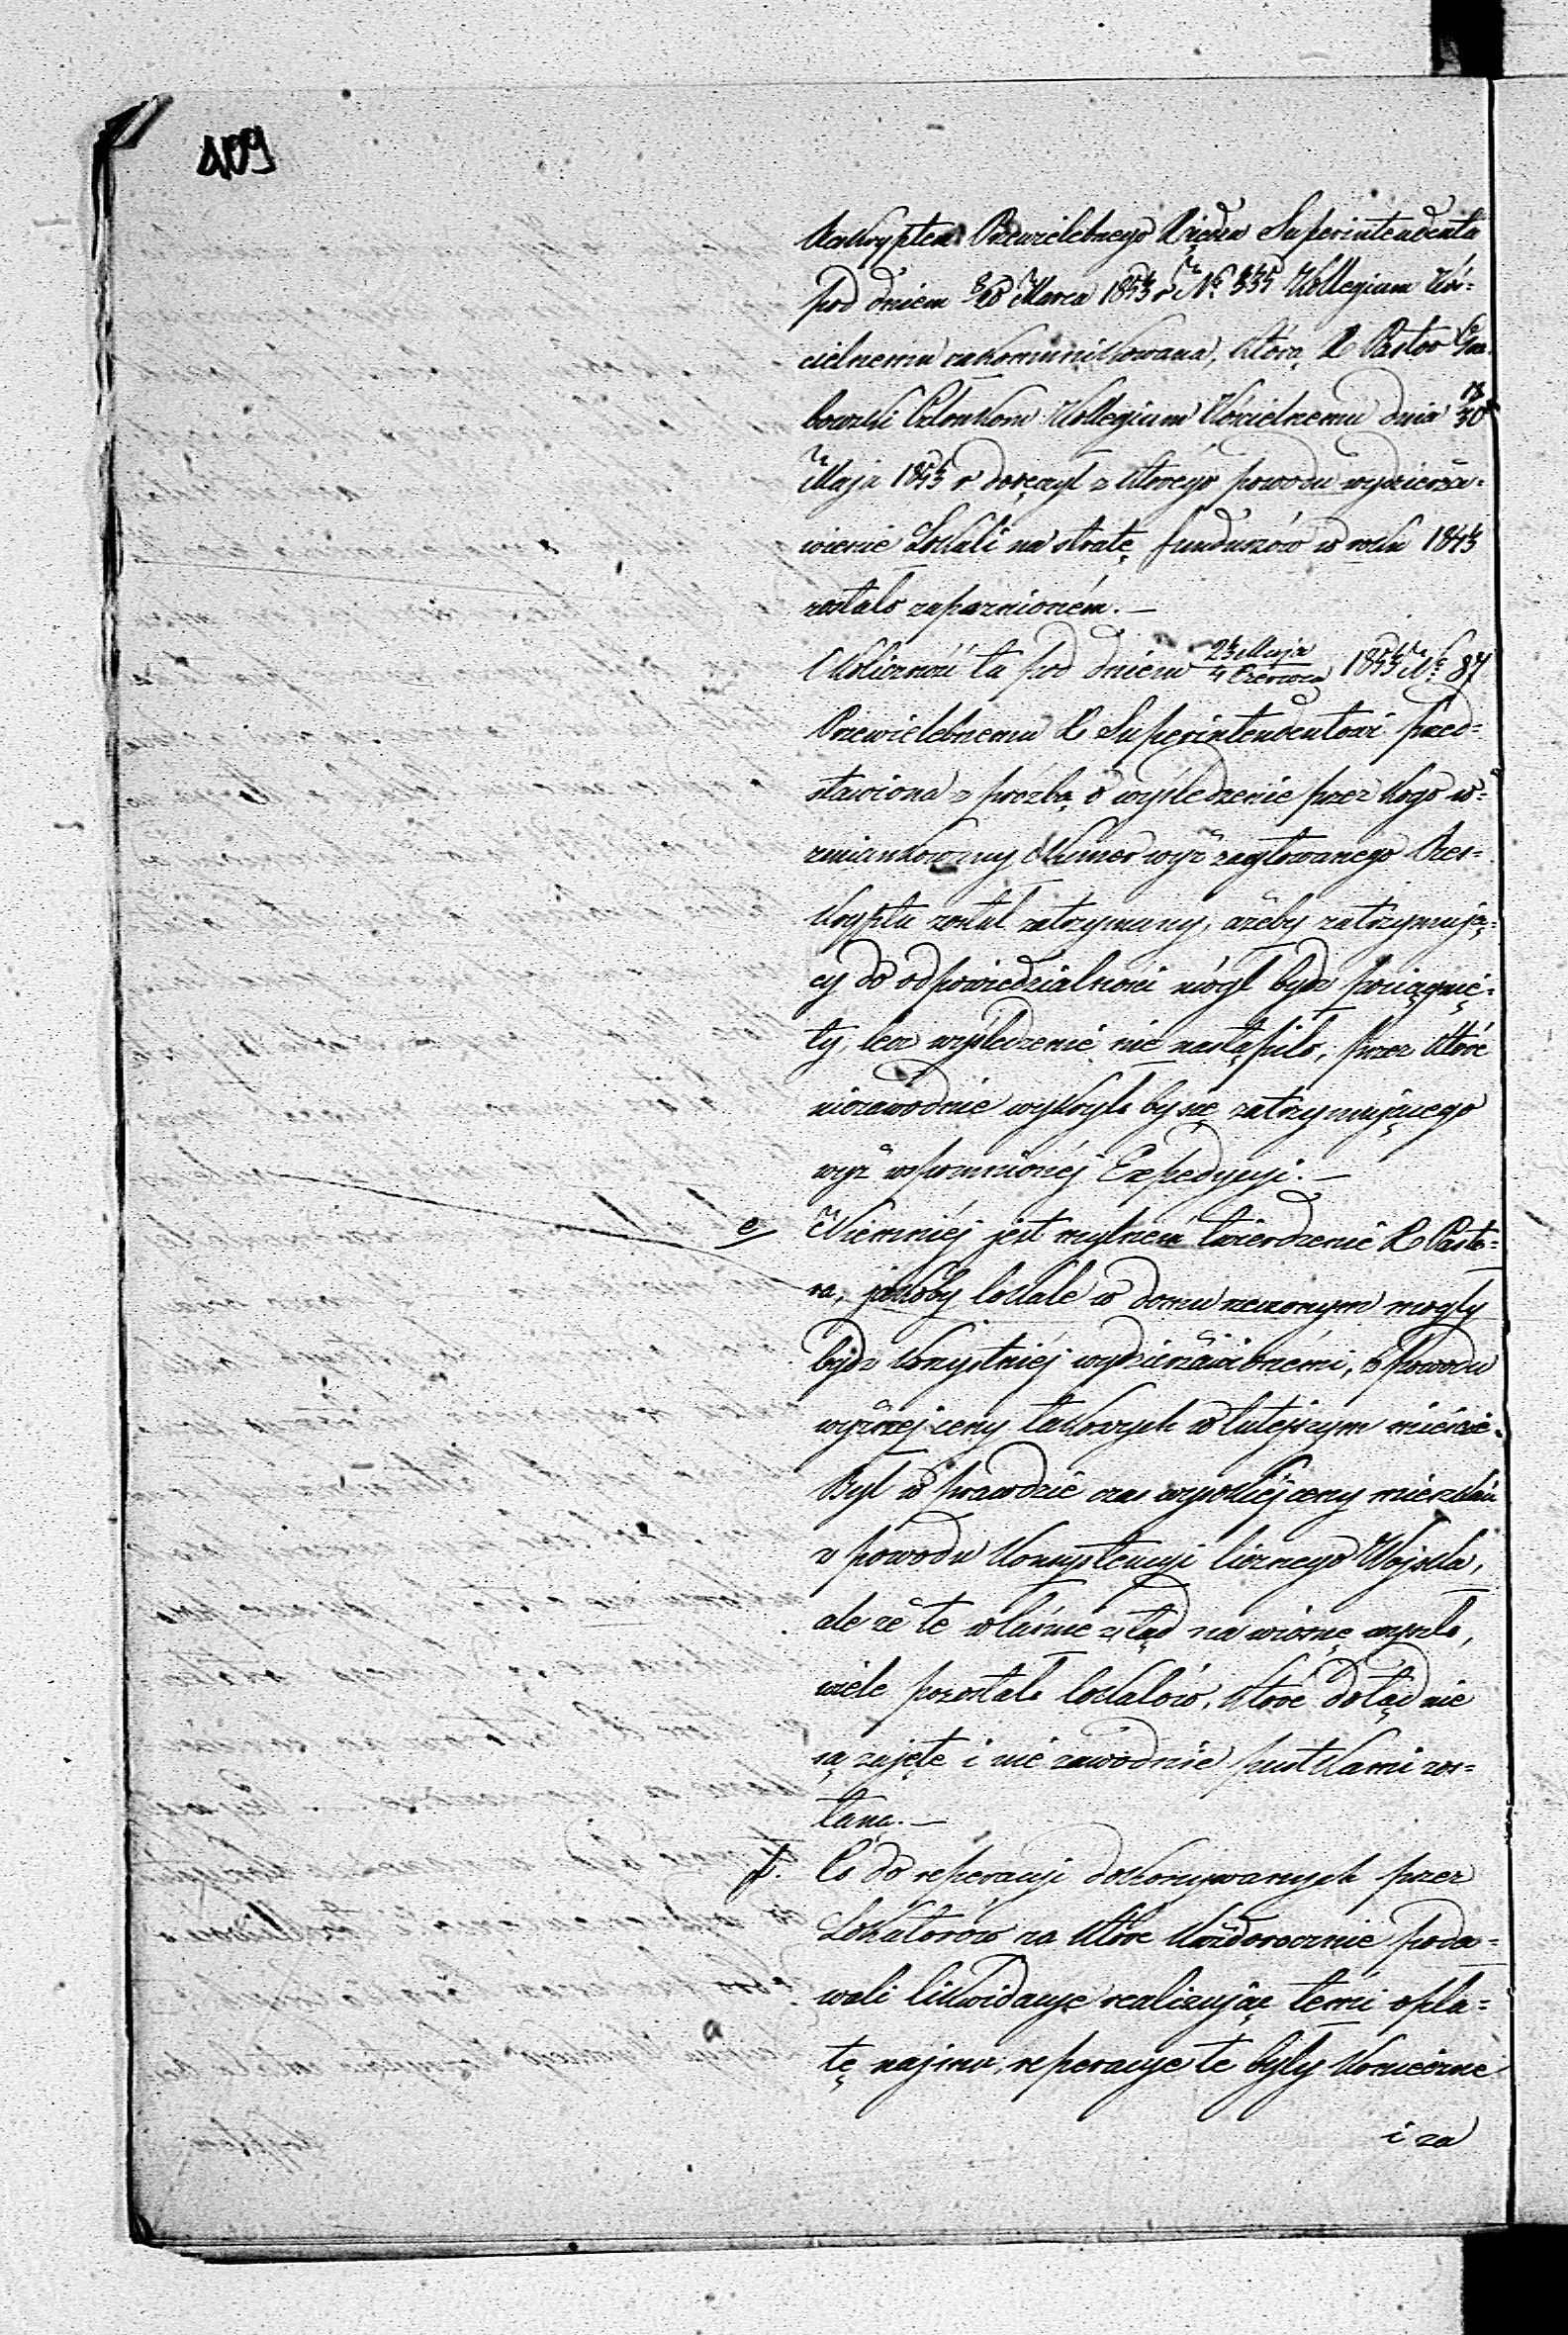 109
Reskryptem Przewielebnego Xiędza Superintendenta
pod dniem 8/20 Marca 1843 r № 335 Kollegium Koś=
cielnemu zakomunikowana, którą X Pastor
bowski Członkom Kollegium Kościelnemu dnia 18/30
Maja 1843 r doręczył z którego powodu wydzierża=
wienie Lokali na stratę funduszów w roku 1843
zostało zapoznioném. —
Okoliczność ta pod dniem 23 Maja/4 Czerwca 1843 № 87
Przewielebnemu X Superintendentowi przed=
stawiona z prożbą o wyśledzenie przez kogo w=
zmiankowany Numer wyż zacytowanego Res=
kryptu został zatrzymany, ażeby zatrzymują=
cy do odpowiedzialności mógł bydz pociągnię=
ty, lecz wyśledzenie nie nastąpiło, przez które
niezawodnie wykryło by się zatrzymującego
wyż wspomnionéj Expedycyi. —
e/ Niemniéj jest mylnem twierdzenie X Pasto=
ra, jakoby lokale w domu rzeczonym mogły
bydz korzystniéj wydzierżawionémi, z powodu
wyższej ceny takowych w tutejszym mieście.
Był w prawdzie czas wysokiéj ceny mieszkań
z powodu konsystencyi licznego Wojska,
ale że te właśnie ztąd na wiosnę wyszło,
wiele pozostało lokalów, które dotąd nie
są zajęte i nie zawodnie pustkami zos=
taną. —
f. Co do reperacyi dokonywanych przez
Lokatorów za które każdorocznie poda=
wali likwidacye realizując temi opła=
tę najmu, reperacye te były konieczne
i za